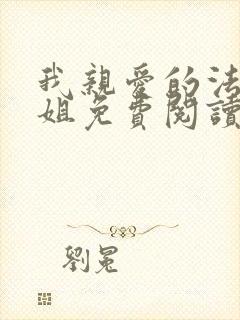 我親愛的法
姐免費閱讀
劉冕